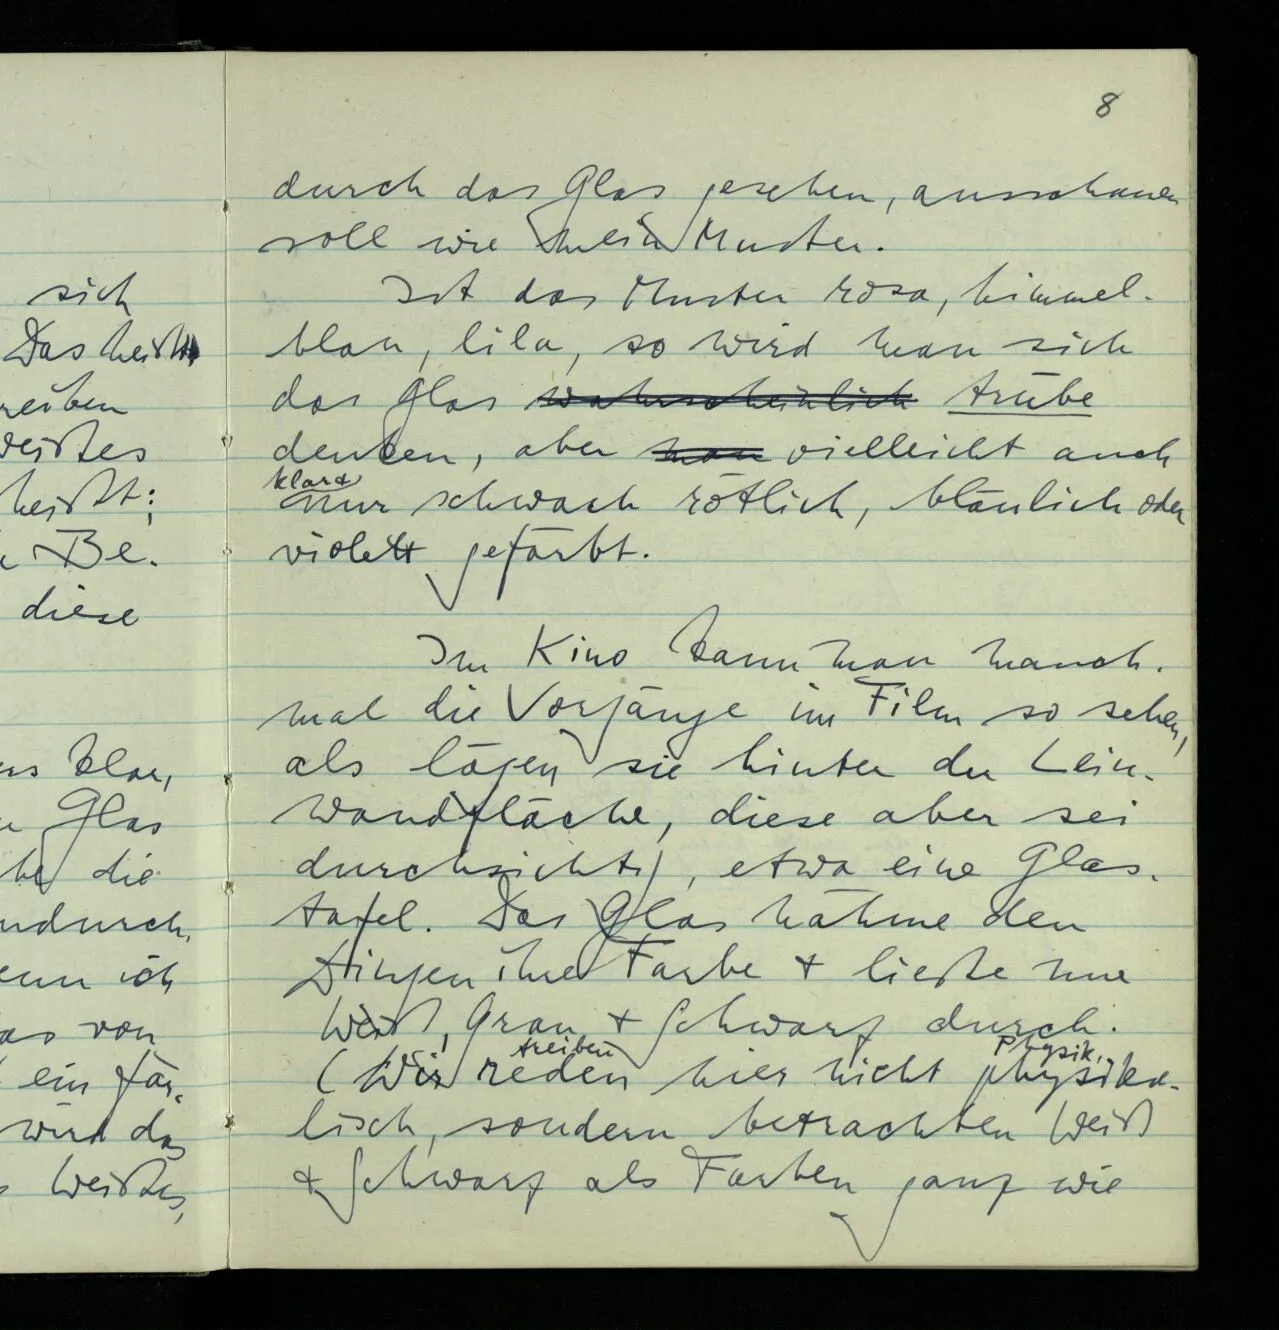 8
durch das Glas gesehen, ausschauen
soll wie mein Muster.
Ist das Muster rosa, himmel-
blau, lila, so wird man sich
das Glas wahrscheinlich trübe
denken, aber man vielleicht auch
klar &
nur schwach rötlich, bläulich oder
violett gefärbt.
Im Kino kann man manch-
mal die Vorgänge im Film so sehen,
als lägen sie hinter der Lein-
wandfläche, diese aber sei
durchsichtig, etwa eine Glas-
tafel. Das Glas nähme den
Dingen ihre Farbe & ließe nur
Weiß, Grau & Schwarz durch.
treiben Physik,
(Wir reden hier nicht physika-
lisch, sondern betrachten Weiß
& Schwarz als Farben ganz wie
sich
Das heißt
reiben
weißes
heißt:
Be-
diese
klar,
Glas
die
ndurch,
enn ich
as von
ein fär-
wird das
Weißes,